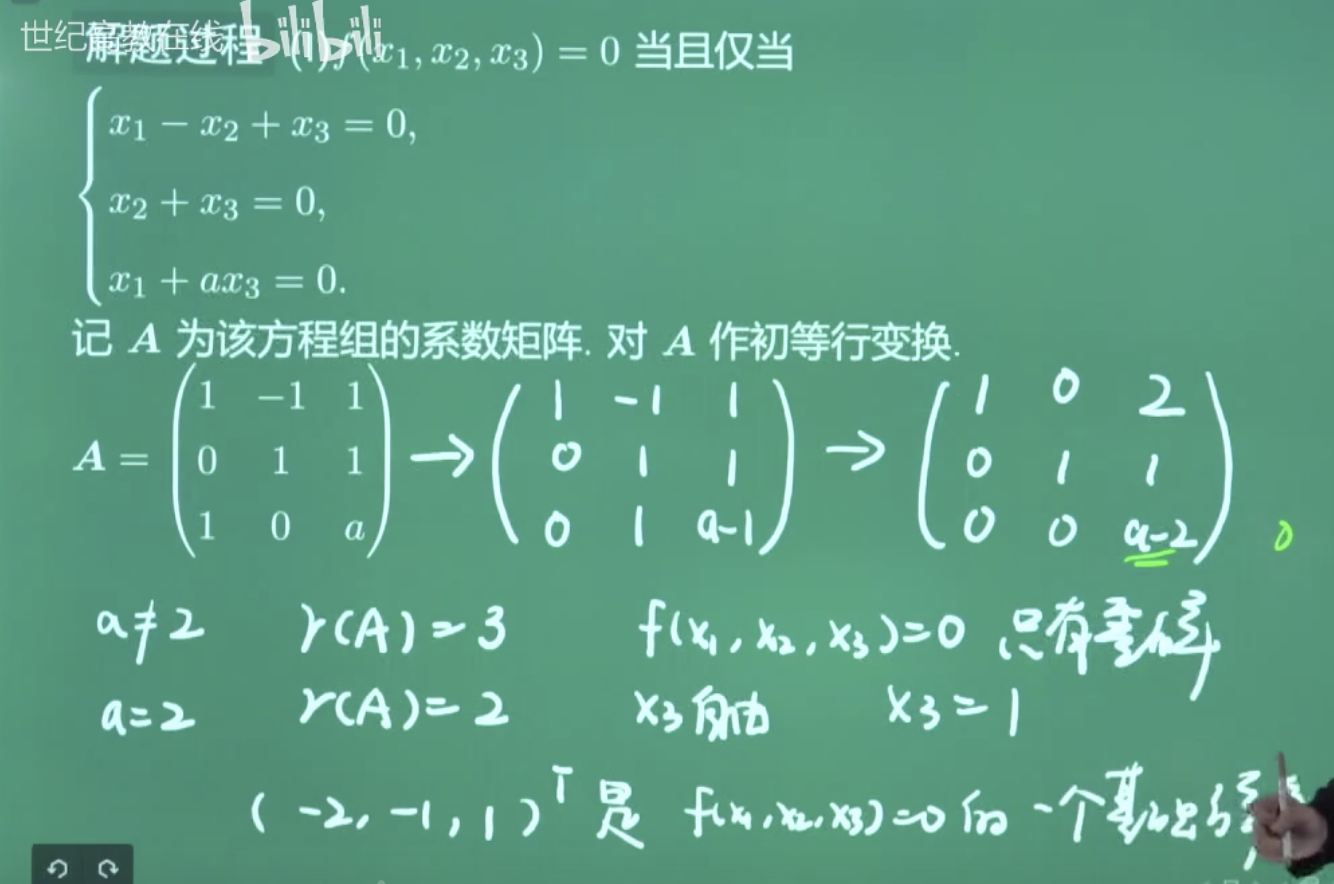 世纪高教在线 bilibili
解题过程 (1) f(x₁, x₂, x₃) = 0 当且仅当
x₁ − x₂ + x₃ = 0,
x₂ + x₃ = 0,
x₁ + ax₃ = 0.
记 A 为该方程组的系数矩阵. 对 A 作初等行变换.
1 −1 1 1 -1 1 1 0 2
A = 0 1 1 → 0 1 1 → 0 1 1
1 0 a 0 1 a-1 0 0 a-2 0
a≠2 r(A)=3 f(x₁, x₂, x₃)=0 只有零解
a=2 r(A)=2 x₃自由 x₃=1
(-2, -1, 1)ᵀ 是 f(x₁, x₂, x₃)=0 的一个基础解系